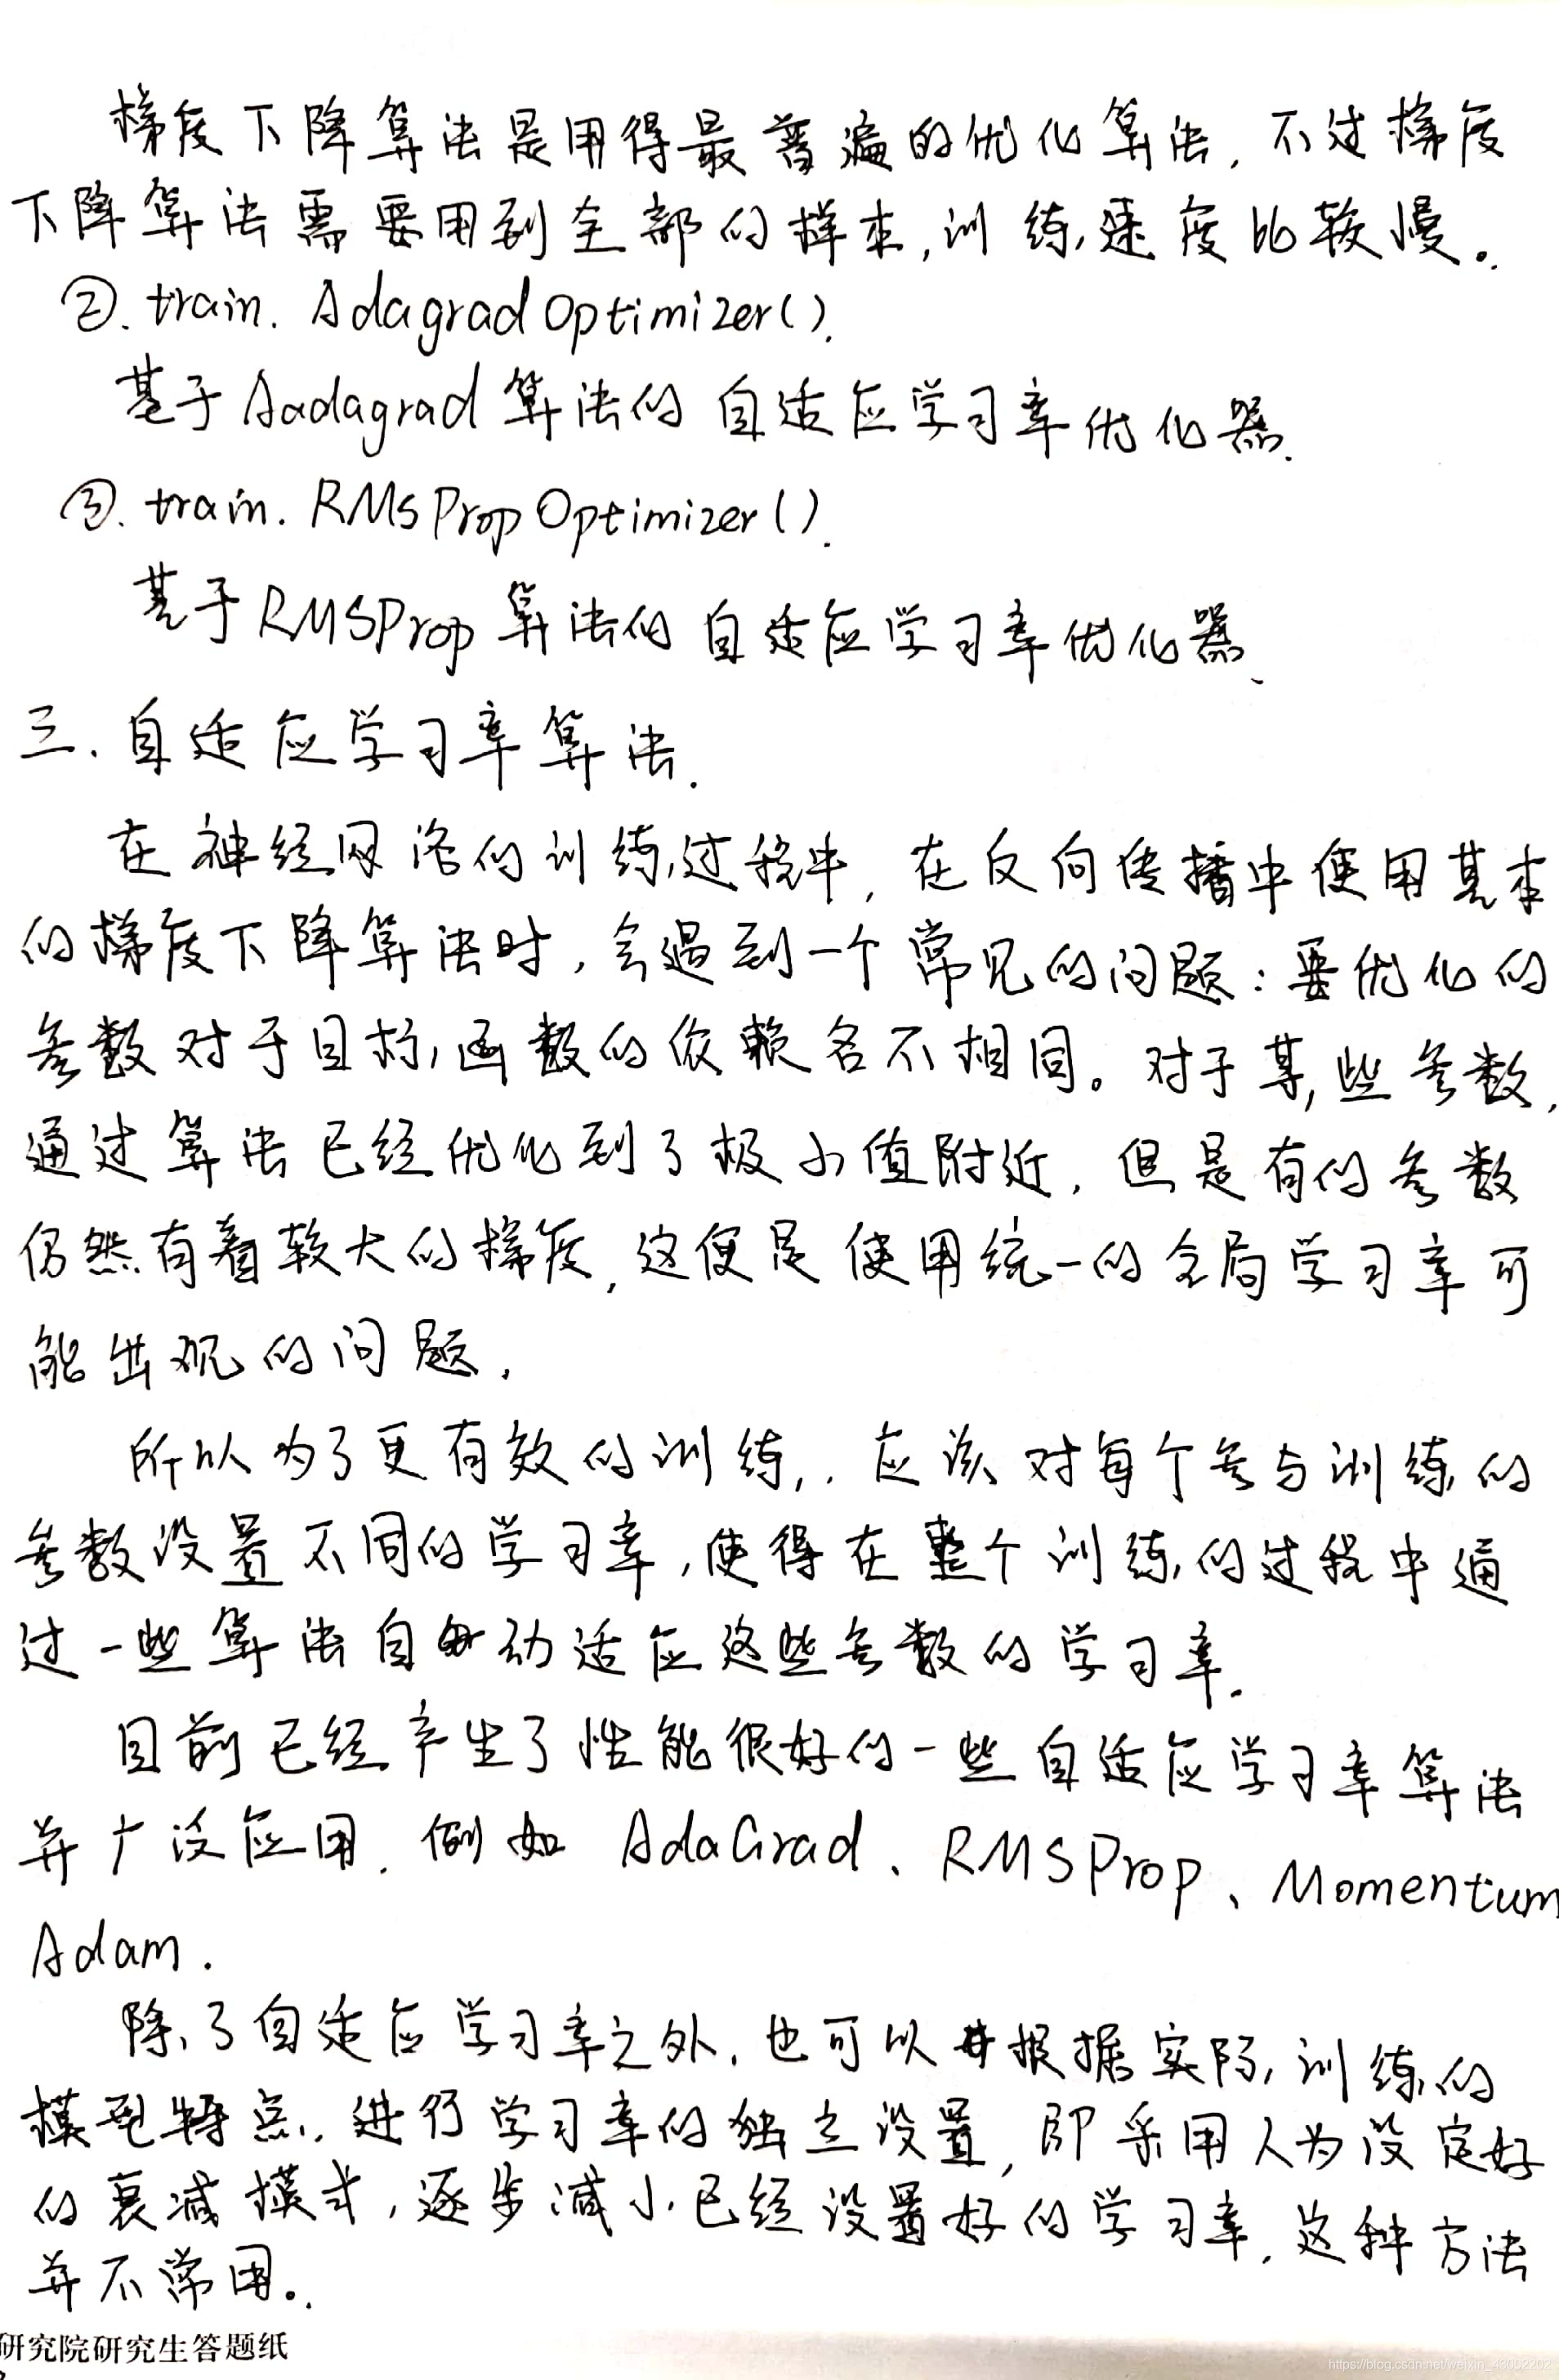 梯度下降算法是用得最普遍的优化算法, 不过梯度
下降算法需要用到全部的样本,训练速度比较慢。
②. train. AdagradOptimizer().
基于Aadagrad算法的自适应学习率优化器.
③. train. RMsPropOptimizer().
基于RMSProp算法的自适应学习率优化器.
三. 自适应学习率算法.
在神经网络的训练过程中, 在反向传播中使用基本
的梯度下降算法时, 会遇到一个常见的问题: 要优化的
参数对于目标函数的依赖各不相同。对于某些参数,
通过算法已经优化到了极小值附近, 但是有的参数
仍然有着较大的梯度, 这便是使用统一的全局学习率可
能出现的问题.
所以为了更有效的训练, 应该对每个参与训练的
参数设置不同的学习率, 使得在整个训练的过程中通
过一些算法自动适应这些参数的学习率.
目前已经产生了性能很好的一些自适应学习率算法
并广泛应用. 例如 AdaGrad、RMSProp、Momentum
Adam.
除了自适应学习率之外, 也可以根据实际训练的
模型特点, 进行学习率的独立设置, 即采用人为设定好
的衰减模式, 逐步减小已经设置好的学习率, 这种方法
并不常用。
研究院研究生答题纸
https://blog.csdn.net/weixin_43002202